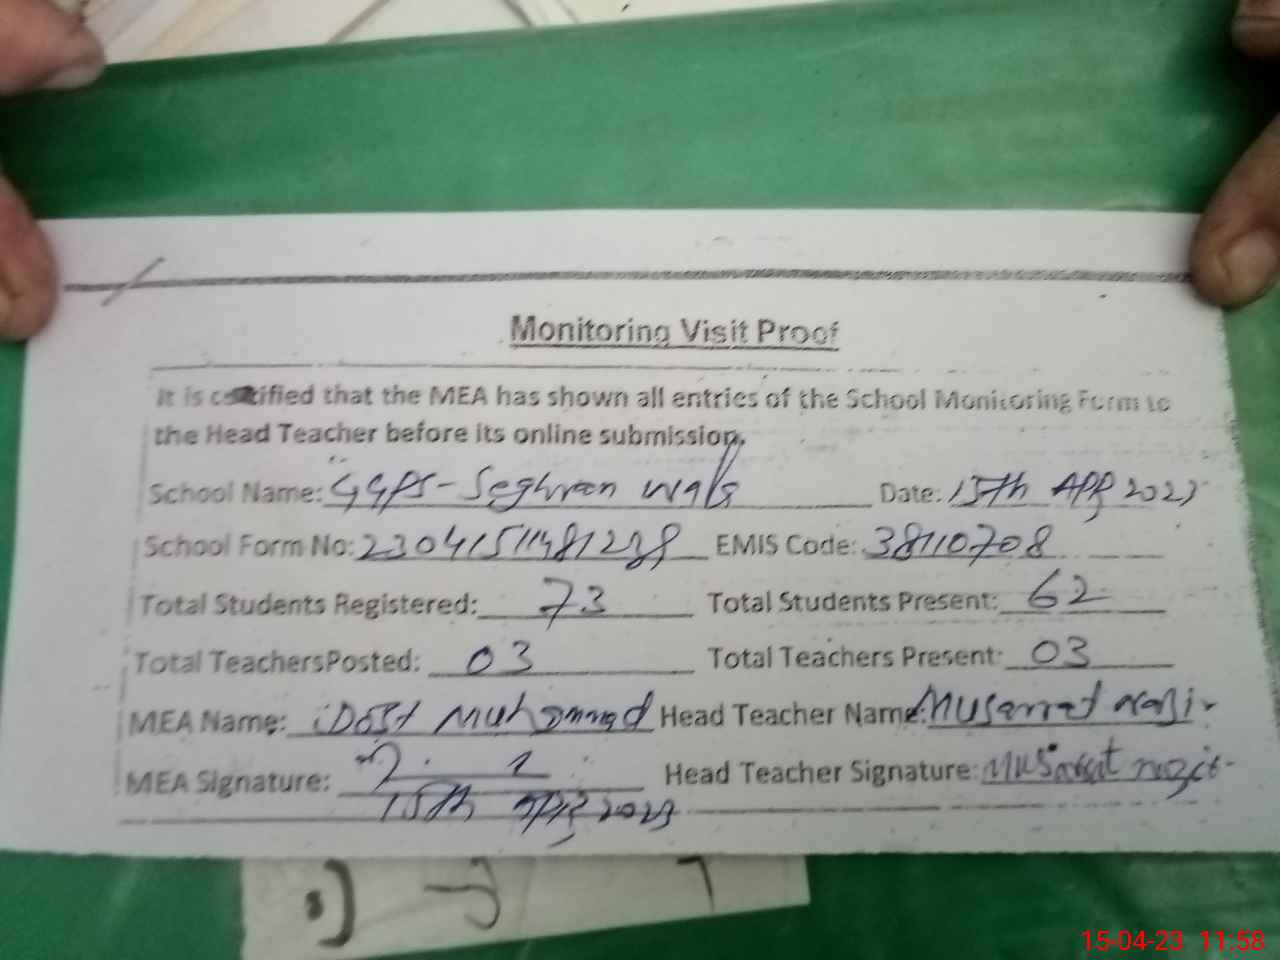 Monitoring Visit Proof
It is certified that the MEA has shown all entries of the School Monitoring Form to
the Head Teacher before its online submission.
School Name: GGPS - Seghran wala Date: 15th APR 2023
School Form No: 2304151148 EMIS Code: 38110708
Total Students Registered: 73 Total Students Present: 62
Total TeachersPosted: 03 Total Teachers Present: 03
MEA Name: Dost Muhammad Head Teacher Name: Musarrat nazir
MEA Signature: Head Teacher Signature: Musarrat nazir
15th APR 2023
15-04-23 11:58